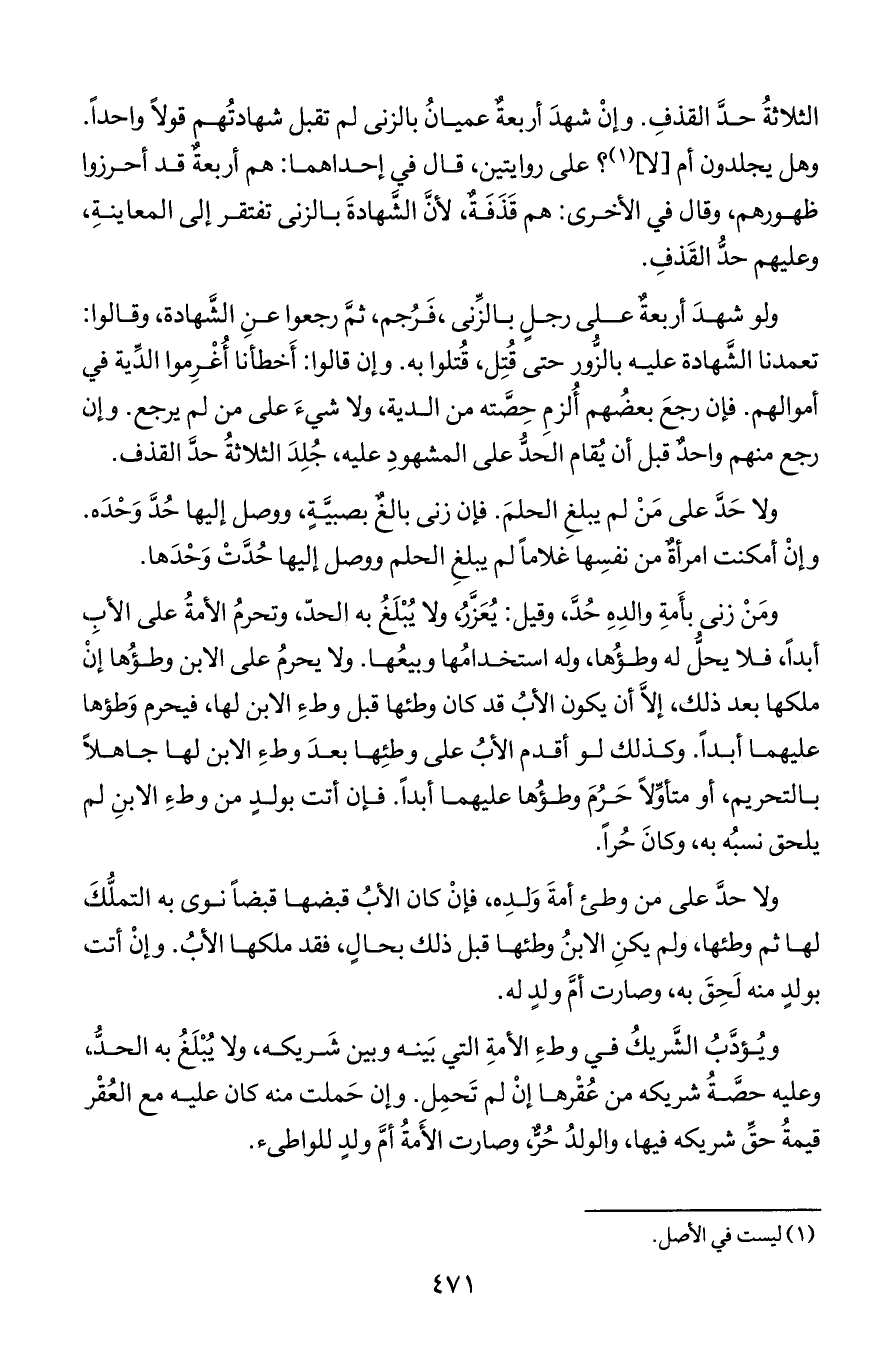 الثلاثةُ حـدَّ القذفِ. وإنْ شهدَ أربعةٌ عميـانُ بالزنى لم تقبل شهادتُهـم قولاً واحداً.
وهل يجلدون أم [لا]<sup>(١)</sup>؟ على روايتين، قـال في إحـداهمـا: هم أربعةٌ قـد أحـرزوا
ظهـورهم، وقال في الأخـرى: هم قَذَفَـةٌ، لأنَّ الشَّهادةَ بـالزنى تفتقـر إلى المعاينـةِ،
وعليهم حدُّ القَذفِ.
ولو شهـدَ أربعةٌ عـلـى رجـلٍ بـالزِّنى ،فَـرُجم، ثمَّ رجعوا عـنِ الشَّهادة، وقـالوا:
تعمدنا الشَّهادة عليـه بالزُّور حتى قُتِل، قُتلوا به. وإن قالوا: أَخطأنا أُغْـرِموا الدِّية في
أموالهم. فإن رجعَ بعضُهم أُلزمِ حِصَّته من الـدية، ولا شيءَ على من لم يرجع. وإن
رجع منهم واحدٌ قبل أن يُقام الحدُّ على المشهودِ عليه، جُلِدَ الثلاثةُ حدَّ القذف.
ولا حَدَّ على مَنْ لم يبلغِ الحلمَ. فإن زنى بالغٌ بصبيَّـةٍ، ووصل إليها حُدَّ وَحْدَه.
وإنْ أمكنت امرأةٌ من نفسِها غلاماً لم يبلغِ الحلم ووصل إليها حُدَّتْ وَحْدَها.
ومَنْ زنى بأَمةِ والدِهِ حُدَّ، وقيل: يُعَزَّرُ، ولا يُبْلَغُ به الحدّ، وتحرمُ الأمةُ على الأبِ
أبداً، فـلا يحلُّ له وطـؤُها، وله استخـدامُها وبيعُهـا. ولا يحرمُ على الابن وطـؤُها إنْ
ملكها بعد ذلك، إلاَّ أن يكون الأبُ قد كان وطئها قبل وطءِ الابن لها، فيحرم وَطؤها
عليهمـا أبـداً. وكـذلك لـو أقـدم الأبُ على وطئِهـا بعـدَ وطءِ الابن لهـا جـاهـلاً
بـالتحريم، أو متأوِّلاً حَـرُمَ وطـؤُها عليهمـا أبداً. فـإن أتت بولـدٍ من وطءِ الابنِ لم
يلحق نسبُه به، وكانَ حُراً.
ولا حدَّ على من وطـئ أمةَ وَلـدِه، فإنْ كان الأبُ قبضهـا قبضاً نـوى به التملُّكَ
لهـا ثم وطئها، ولم يكنِ الابنُ وطئهـا قبل ذلك بحـالٍ، فقد ملكهـا الأبُ. وإنْ أتت
بولدٍ منه لَحِقَ به، وصارت أمَّ ولدٍ له.
ويُـؤدَّبُ الشَّريكُ فـي وطءِ الأمةِ التي بَينـه وبين شَـريكـه، ولا يُبْلَغُ به الحـدُّ،
وعليه حصَّـةُ شريكه من عُقْرهـا إنْ لم تَحمِل. وإن حَملت منه كان عليـه مع العُقْر
قيمةُ حقِّ شريكه فيها، والولدُ حُرٌّ، وصارت الأَمةُ أمَّ ولدٍ للواطىء.
(١) ليست في الأصل.
٤٧١